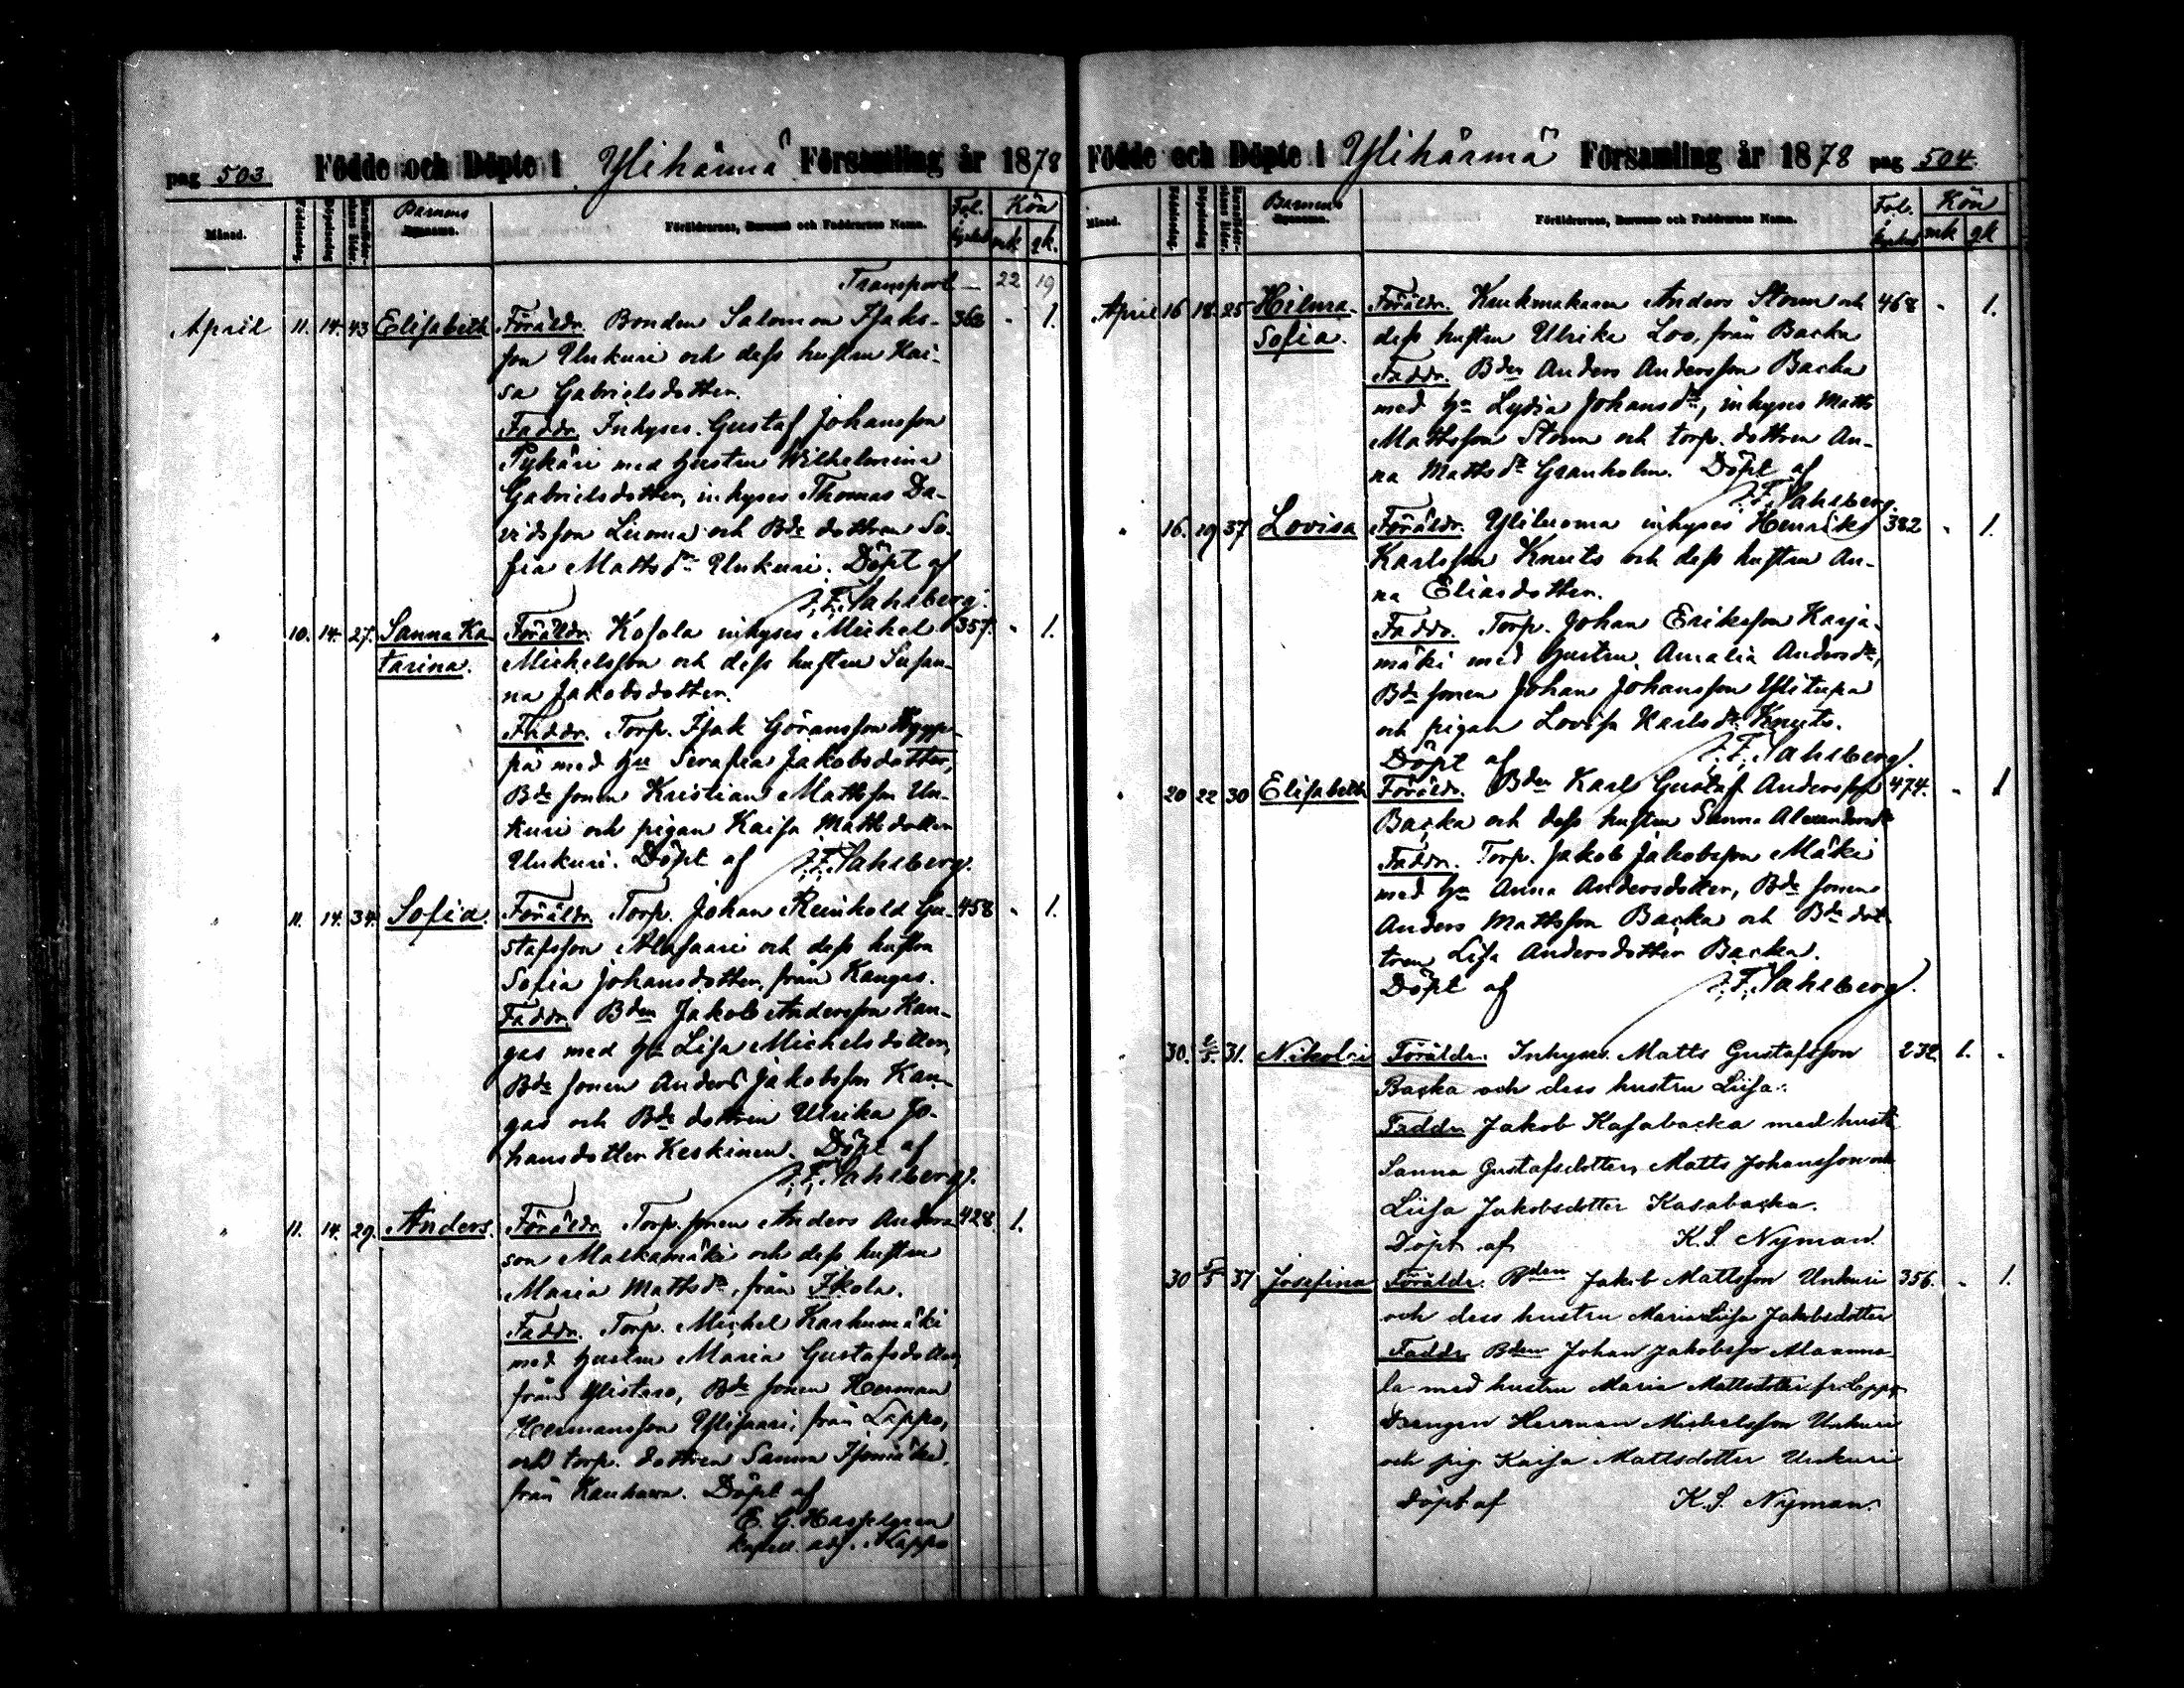 pag 503 Födde och Döpte i Ylihärmä Församling år 1878
Månad. Födelsedag. Döpelsedag. Barnens Föräldrarnes, Barnens och Faddrarnes Namn. Fol. i Kön
mk. qk.
Transport — 22 19
April 11. 14. 43 Elisabeth Föräldr. Bonden Salomon Isaks- 368 " 1.
son Unkuri och dess hustru Kai-
sa Gabrielsdotter.
Faddr. Inhyses Gustaf Johansson
Pykäri med hustru Wilhelmina
Gabrielsdotter, inhyses Thomas Da-
vidsson Luoma och Bde dottren So-
fia Mattsdr Unkuri. Döpt af
J. F. Sahlberg.
" 10. 14. 27. Sanna Ka- Föräldr. Kosola inhyses Michel 357. " 1.
tarina. Michelsson och dess hustru Susan-
na Jakobsdotter.
Faddr. Torp. Isak Göransson
pä med hu Serafia Jakobsdotter,
Bde sonen Kristian Mattsson Un-
kuri och pigan Kaisa Mattsdotter
Unkuri. Döpt af J. F. Sahlberg.
" 11. 14. 34. Sofia. Föräldr. Torp. Johan Reinhold Gu- 458 " 1.
stafsson Alasaari och dess hustru
Sofia Johansdotter, från Kangas.
Faddr. Bden Jakob Andersson Kan-
gas med hu Lisa Michelsdotter,
Bde sonen Anders Jakobsson Kan-
gas och Bde dottren Ulrika Jo-
hansdotter Keskinen. Döpt af
J. F. Sahlberg.
" 11. 14. 29. Anders. Föräldr. Torp. sonen Anders Anders- 428. 1.
son Malkamäki och dess hustru
Maria Mattsdr, från Ikola.
Faddr. Torp. Michel Karhumäki
med hustru Maria Gustafsdotter,
från Ylistaro, Bde sonen Herman
Hermansson Ylisaari, från Lappo,
och torp. dottren Sanna Isomäki,
från Kauhava. Döpt af
E. G. Hasselgren
kapell. adj. i Lappo
Födde och Döpte i Ylihärmä Församling år 1878 pag 504.
Månad. Födelsedag. Döpelsedag. Barnens Föräldrarnes, Barnens och Faddrarnes Namn. Fol. i Kön
mk qk
April 16 18. 25 Hilma Föräldr. Krukmakaren Anders Storm och 468 " 1.
Sofia. dess hustru Ulrika Loo, från Backa
Faddr. Bden Anders Andersson Backa
med hu Lydia Johansdr, inhyses Matts
Mattsson Storm och torp. dottren An-
na Mattsdr Granholm. Döpt af
J. F. Sahlberg.
" 16. 19 37 Lovisa Föräldr. Yliluoma inhyses Henrik 382 " 1.
Karlsson Knuts och dess hustru An-
na Eliasdotter.
Faddr. Torp. Johan Eriksson Karja-
mäki med hustru Amalia Andersdr,
Bde sonen Johan Johansson Ylitupa
och pigan Lovisa Karlsdr Knuts.
Döpt af J. F. Sahlberg.
" 20 22 30 Elisabeth Föräldr. Bden Karl Gustaf Andersson 474. " 1
Backa och dess hustru Sanna Alexandersdr
Faddr. Torp. Jakob Jakobsson Mäki
med hu Anna Andersdotter, Bde sonen
Anders Mattsson Backa och Bde dot-
tren Lisa Andersdotter Backa.
Döpt af J. F. Sahlberg.
" 30. 31. Nikolai Föräldr. Inhyses Matts Gustafsson 232. 1. "
Backa och dess hustru Liisa.
Faddr Jakob Kasabacka med hust.
Sanna Gustafsdotter, Matts Johansson och
Liisa Jakobsdotter Kasabacka.
Döpt af K. S. Nyman.
30 5/5 37 Josefina Föräldr. Bden Jakob Mattsson Unkuri 356. " 1.
och dess hustru Maria Liisa Jakobsdotter
Faddr Bden Johan Jakobsson Alaanna-
la med hustru Maria Mattsdotter fr. Lappo,
Drengen Herman Michelsson Unkuri
och pig. Kaisa Mattsdotter Unkuri
Döpt af K. S. Nyman.